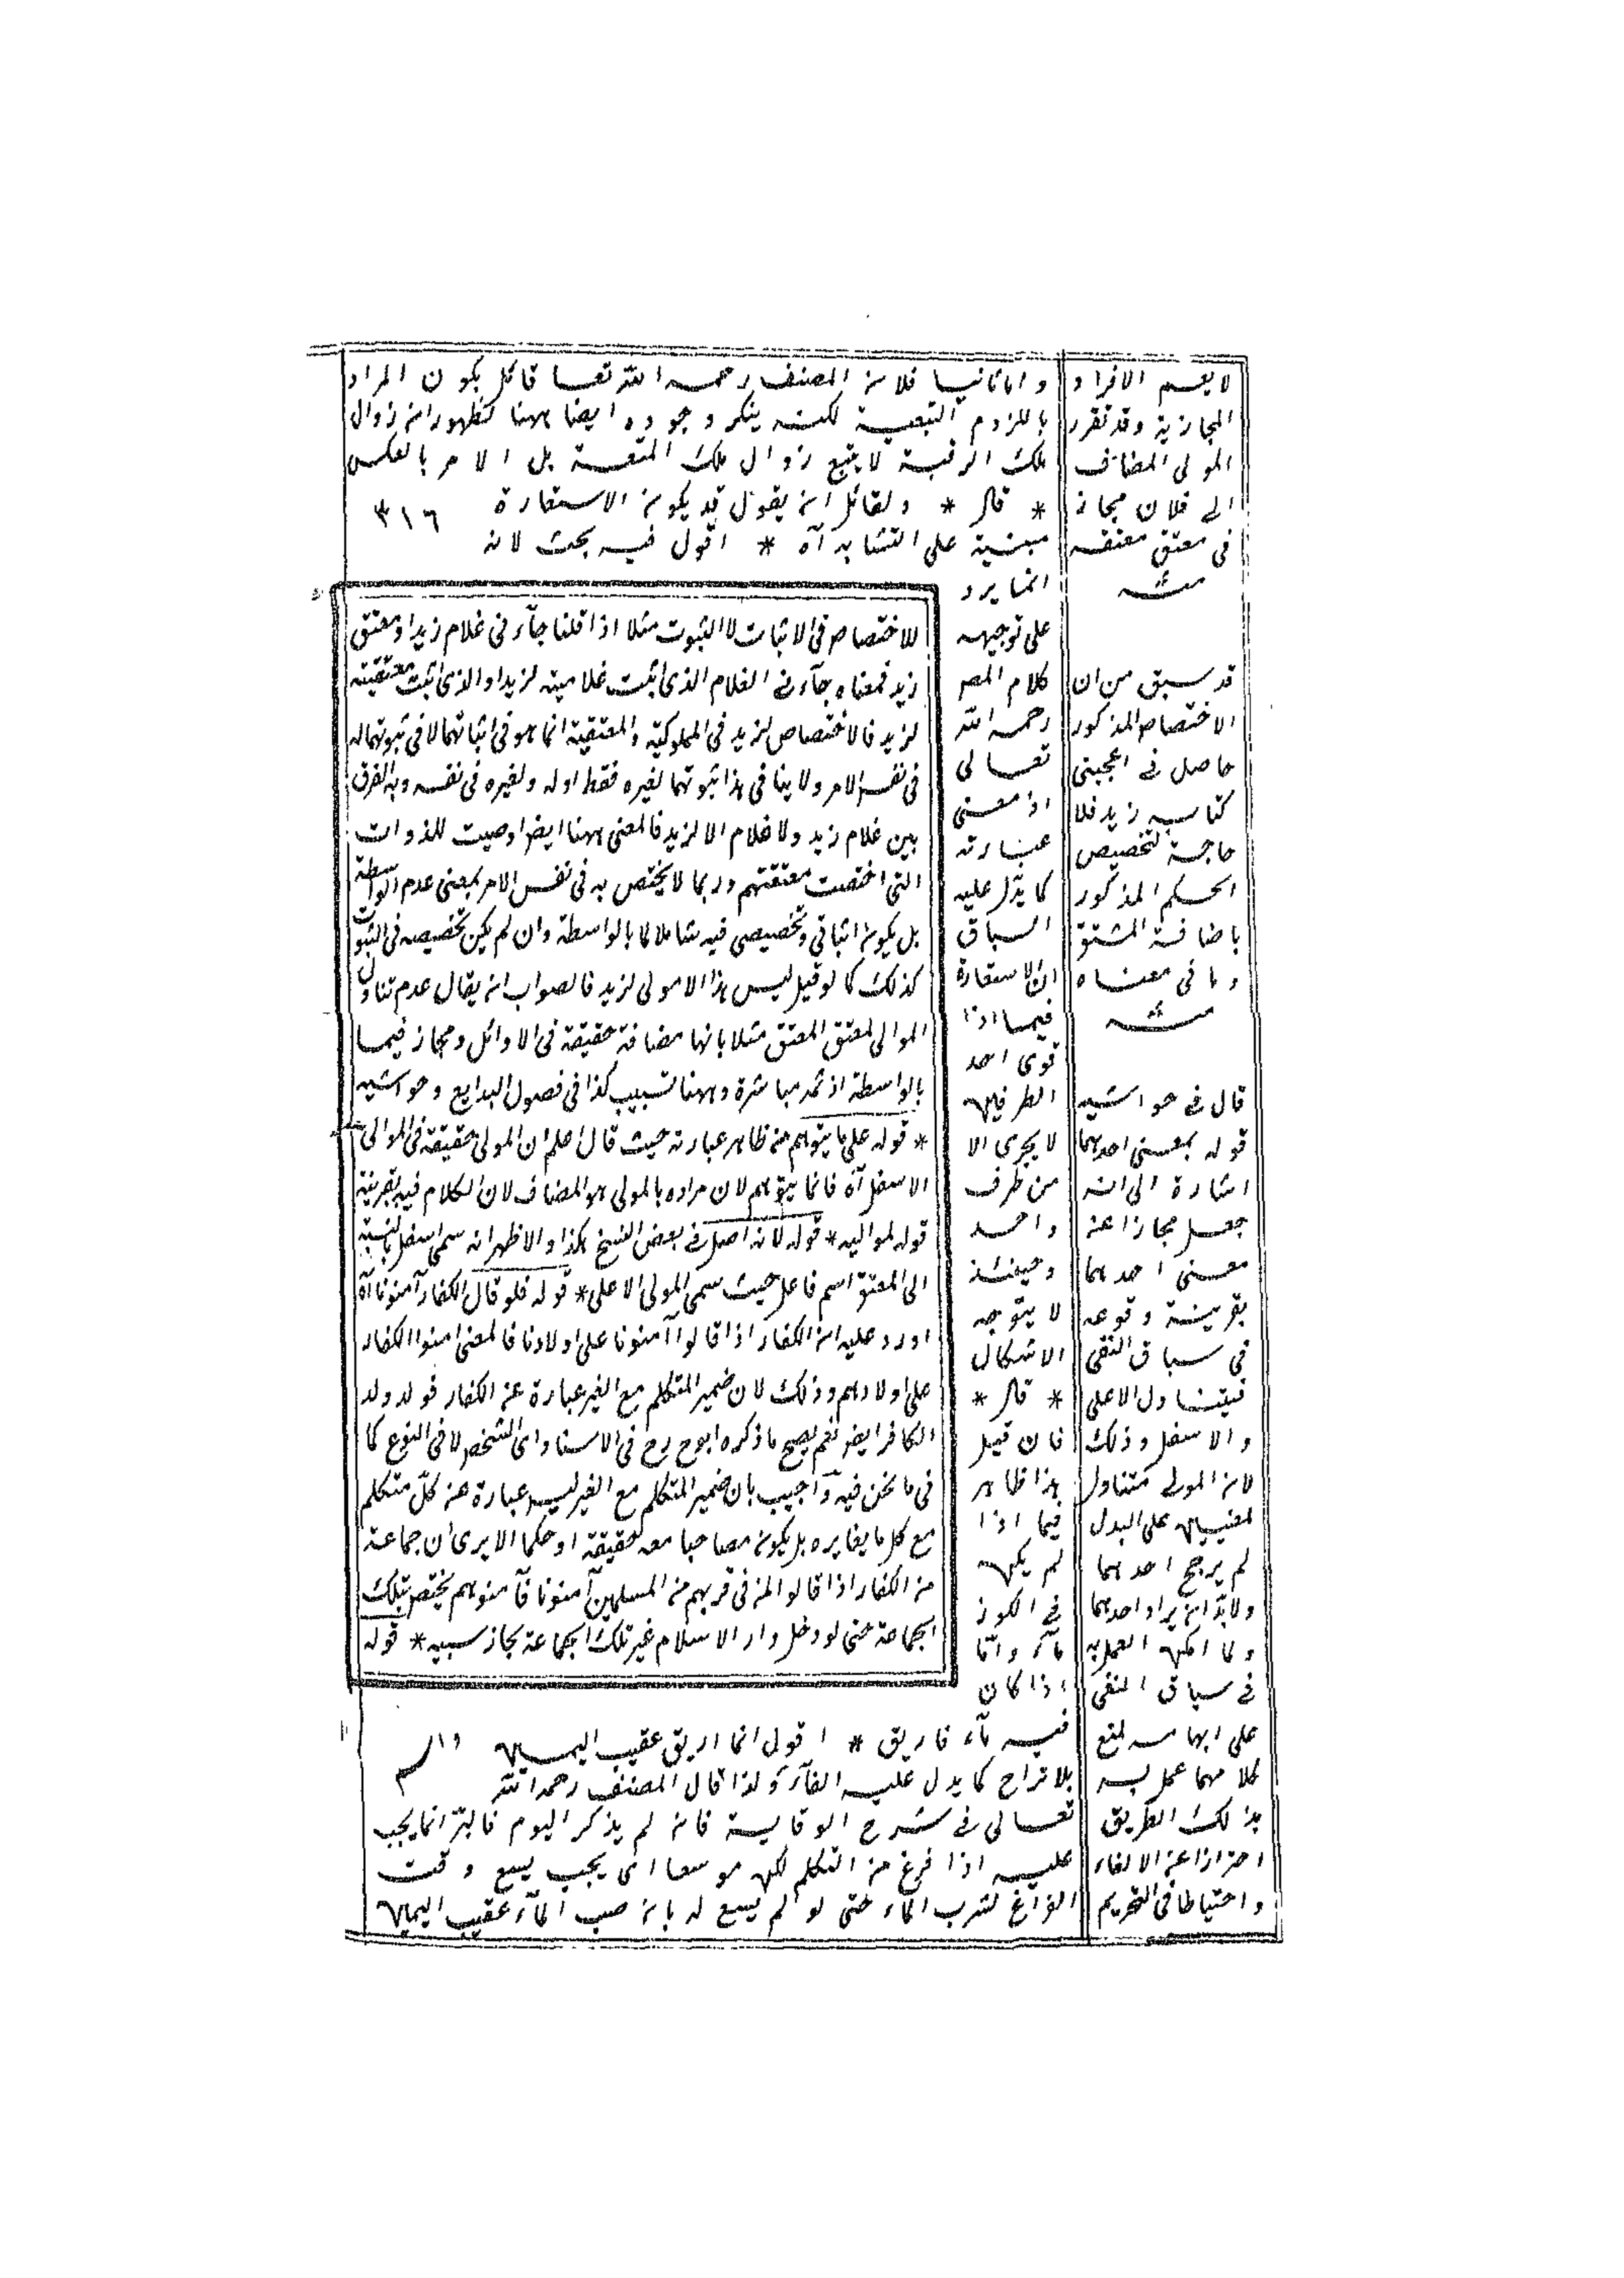 واما ثانيا فلان المصنف رحمه الله تعا قائل بكون المراد
باللزوم التبعية لكنه ينكر وجوده ايضا ههنا لظهور ان زوال
ملك الرقبة لا يتبع زوال ملك المتعة بل الامر بالعكس
* قال * ولقائل ان يقول قد يكون الاستعارة
٣١٦
مبنية على التشابه آه * اقول فيه بحث لانه
انما يرد
على توجيهه
كلام المص
رحمه الله
تعالى
اذ معنى
عبارته
كما يدل عليه
السباق
ان الاستعارة
فيما اذا
قوى احد
الطرفين
لا يجرى الا
من طرف
واحد
وحينئذ
لا يتوجه
الاشكال
* قال *
فان قيل
هذا ظاهر
فيما اذا
لم يكن
فى الكوز
ماء واما
اذا كان
فيه ماء فاريق * اقول انما اريق عقيب اليمين
بلا تراخ كما يدل عليه الفاء ولذا قال المصنف رحمه الله
تعالى فى شرح الوقاية فان لم يذكر اليوم فالبر انما يجب
عليه اذا فرغ من التكلم لكن موسعا اى يجب يسع وقت
الفراغ لشرب الماء حتى لو لم يسع له بان صب الماء عقيب اليمين
للاختصاص فى الاثبات لا الثبوت مثلا اذا قلنا جاء فى غلام زيد او معتق
زيد فمعناه جاء نى الغلام الذى اثبت غلاميته لزيد او الذى اثبت معتقيته
لزيد فالاختصاص لزيد فى المملوكية والمعتقية انما هو فى اثباتهما لا فى ثبوتهما له
فى نفس الامر ولا ينافى هذا ثبوتهما لغيره فقط اوله ولغيره فى نفسه وبه الفرق
بين غلام زيد ولا غلام الا لزيد فالمعنى ههنا ايضا اوصيت للذوات
التى اختصت معتقتهم وربما لا يختص به فى نفس الامر بمعنى عدم الواسطة
بل يكون اثباتى وتخصيصى فيه شاملا لما بالواسطة وان لم يكن تخصيصه فى الثبوت
كذلك كما لو قيل ليس هذا الا مولى لزيد فالصواب ان يقال عدم تناول
الموالى لمعتق المعتق مثلا بانها مضافة حقيقة فى الاوائل ومجاز فيما
بالواسطة اذ ثمه مباشرة وههنا تسبيب كذا فى فصول البدايع وحواشيه
* قوله على ما يتوهم من ظاهر عبارته حيث قال اعلم ان المولى حقيقة فى الموالى
الاسفل آه فانما يتوهم لان مراده بالمولى هو المضاف لان الكلام فيه بقرينة
قوله لمواليه * قوله لانه اصل فى بعض النسخ هكذا والاظهر انه سمى اسفل بالنسبة
الى المعتق اسم فاعل حيث سمى المولى الاعلى * قوله فلو قال الكفار آمنونا آه
اورد عليه ان الكفار اذا قالوا آمنونا على اولادنا فالمعنى امنوا الكفار
على اولادهم وذلك لان ضمير المتكلم مع الغير عبارة عن الكفار فولد ولد
الكافر ايضا نعم يصح ما ذكره ابوح رح فى الاسناد اى الشخص لا فى النوع كما
فى ما نحن فيه واجيب بان ضمير المتكلم مع الغير ليس عبارة عن كل متكلم
مع كل ما يغايره بل يكون مصاحبا معه حقيقة او حكما الا يرى ان جماعة
من الكفار اذا قالوا لمن فى قربهم من المسلمين آمنونا فآمنوهم يختص بتلك
الجماعة حتى لو دخل دار الاسلام غير تلك الجماعة يجاز سبيه * قوله
لا يعم الافراد
المجازية وقد تقرر
المولى المضاف
الى فلان مجاز
فى معتق معتقه
منه
قد سبق من ان
الاختصاص المذكور
حاصل فى اعجبنى
كتابه زيد فلا
حاجة لتخصيص
الحكم المذكور
باضافة المشتق
وما فى معناه
منه
قال فى حواشيه
قوله بمعنى احدهما
اشارة الى انه
جعل مجازا عنه
معنى احدهما
بقرينة وقوعه
فى سياق النفى
فيتناول الاعلى
والاسفل وذلك
لان المولى متناول
لمعنيين على البدل
لم يرجح احدهما
ولا بد ان يراد احدهما
ولما امكن العمل به
فى سياق النفى
على ابهامه لمنع
كلا مهما عمل به
بذلك الطريق
احترازا عن الالغاء
واحتياطا فى التحريم